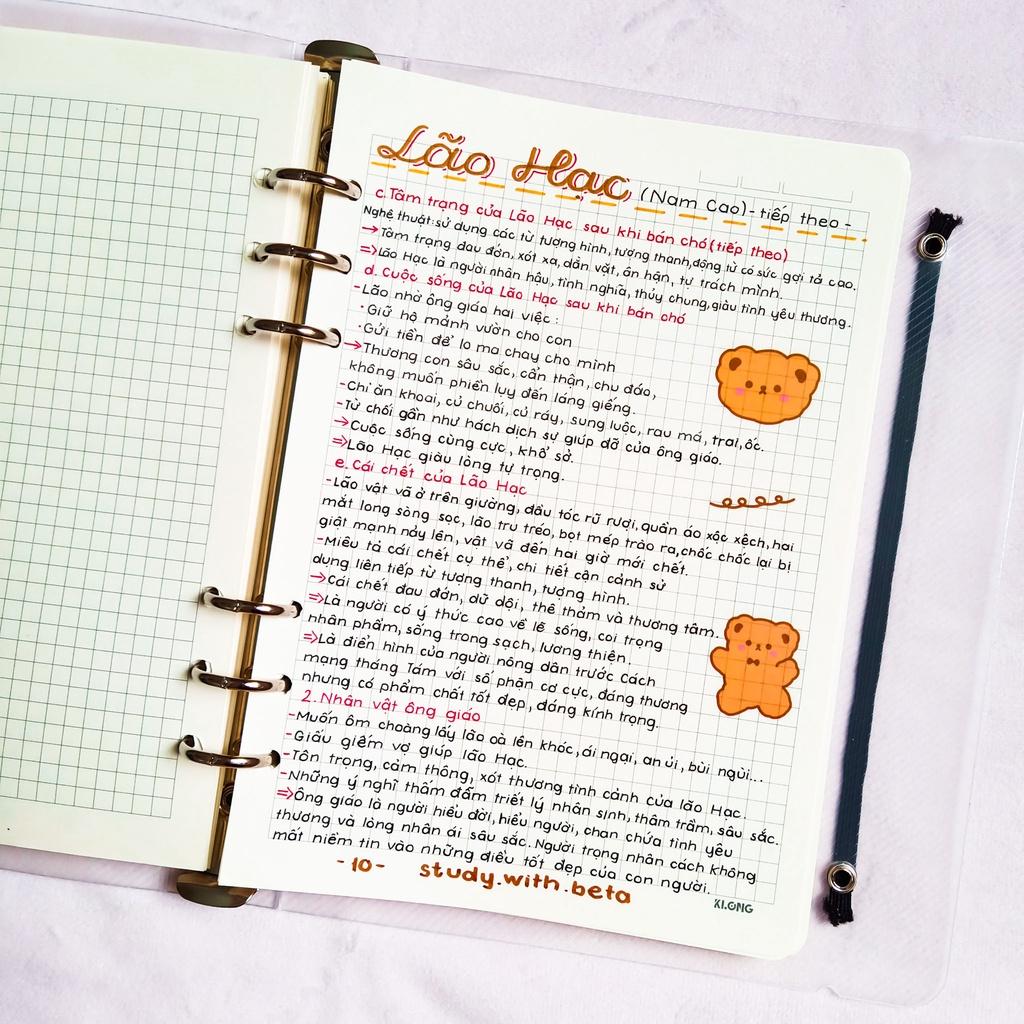 Lão Hạc (Nam Cao)-tiếp theo-
c. Tâm trạng của Lão Hạc sau khi bán chó (tiếp theo)
Nghệ thuật: sử dụng các từ tượng hình, tượng thanh, động từ có sức gợi tả cao.
→Tâm trạng đau đớn, xót xa, dằn vặt, ân hận, tự trách mình.
⇒Lão Hạc là người nhân hậu, tình nghĩa, thủy chung, giàu tình yêu thương.
d. Cuộc sống của Lão Hạc sau khi bán chó
-Lão nhờ ông giáo hai việc:
·Giữ hộ mảnh vườn cho con
·Gửi tiền để lo ma chay cho mình
→Thương con sâu sắc, cẩn thận, chu đáo,
không muốn phiền lụy đến láng giềng.
-Chỉ ăn khoai, củ chuối, củ ráy, sung luộc, rau má, trai, ốc.
-Từ chối gần như hách dịch sự giúp đỡ của ông giáo.
→Cuộc sống cùng cực, khổ sở.
⇒Lão Hạc giàu lòng tự trọng.
e. Cái chết của Lão Hạc
-Lão vật vã ở trên giường, đầu tóc rũ rượi, quần áo xộc xệch, hai
mắt long sòng sọc, lão tru tréo, bọt mép trào ra, chốc chốc lại bị
giật mạnh nảy lên, vật vã đến hai giờ mới chết.
-Miêu tả cái chết cụ thể, chi tiết cận cảnh sử
dụng liên tiếp từ tượng thanh, tượng hình.
→Cái chết đau đớn, dữ dội, thê thảm và thương tâm.
⇒Là người có ý thức cao về lẽ sống, coi trọng
nhân phẩm, sống trong sạch, lương thiện.
⇒Là điển hình của người nông dân trước Cách
mạng tháng Tám với số phận cơ cực, đáng thương
nhưng có phẩm chất tốt đẹp, đáng kính trọng.
2. Nhân vật ông giáo
-Muốn ôm choàng lấy lão oà lên khóc, ái ngại, an ủi, bùi ngùi...
-Giấu giếm vợ giúp lão Hạc.
-Tôn trọng, cảm thông, xót thương tình cảnh của lão Hạc.
-Những ý nghĩ thấm đẫm triết lý nhân sinh, thâm trầm, sâu sắc.
⇒Ông giáo là người hiểu đời, hiểu người, chan chứa tình yêu
thương và lòng nhân ái sâu sắc. Người trọng nhân cách không
mất niềm tin vào những điều tốt đẹp của con người.
-10- study.with.beta
KLONG